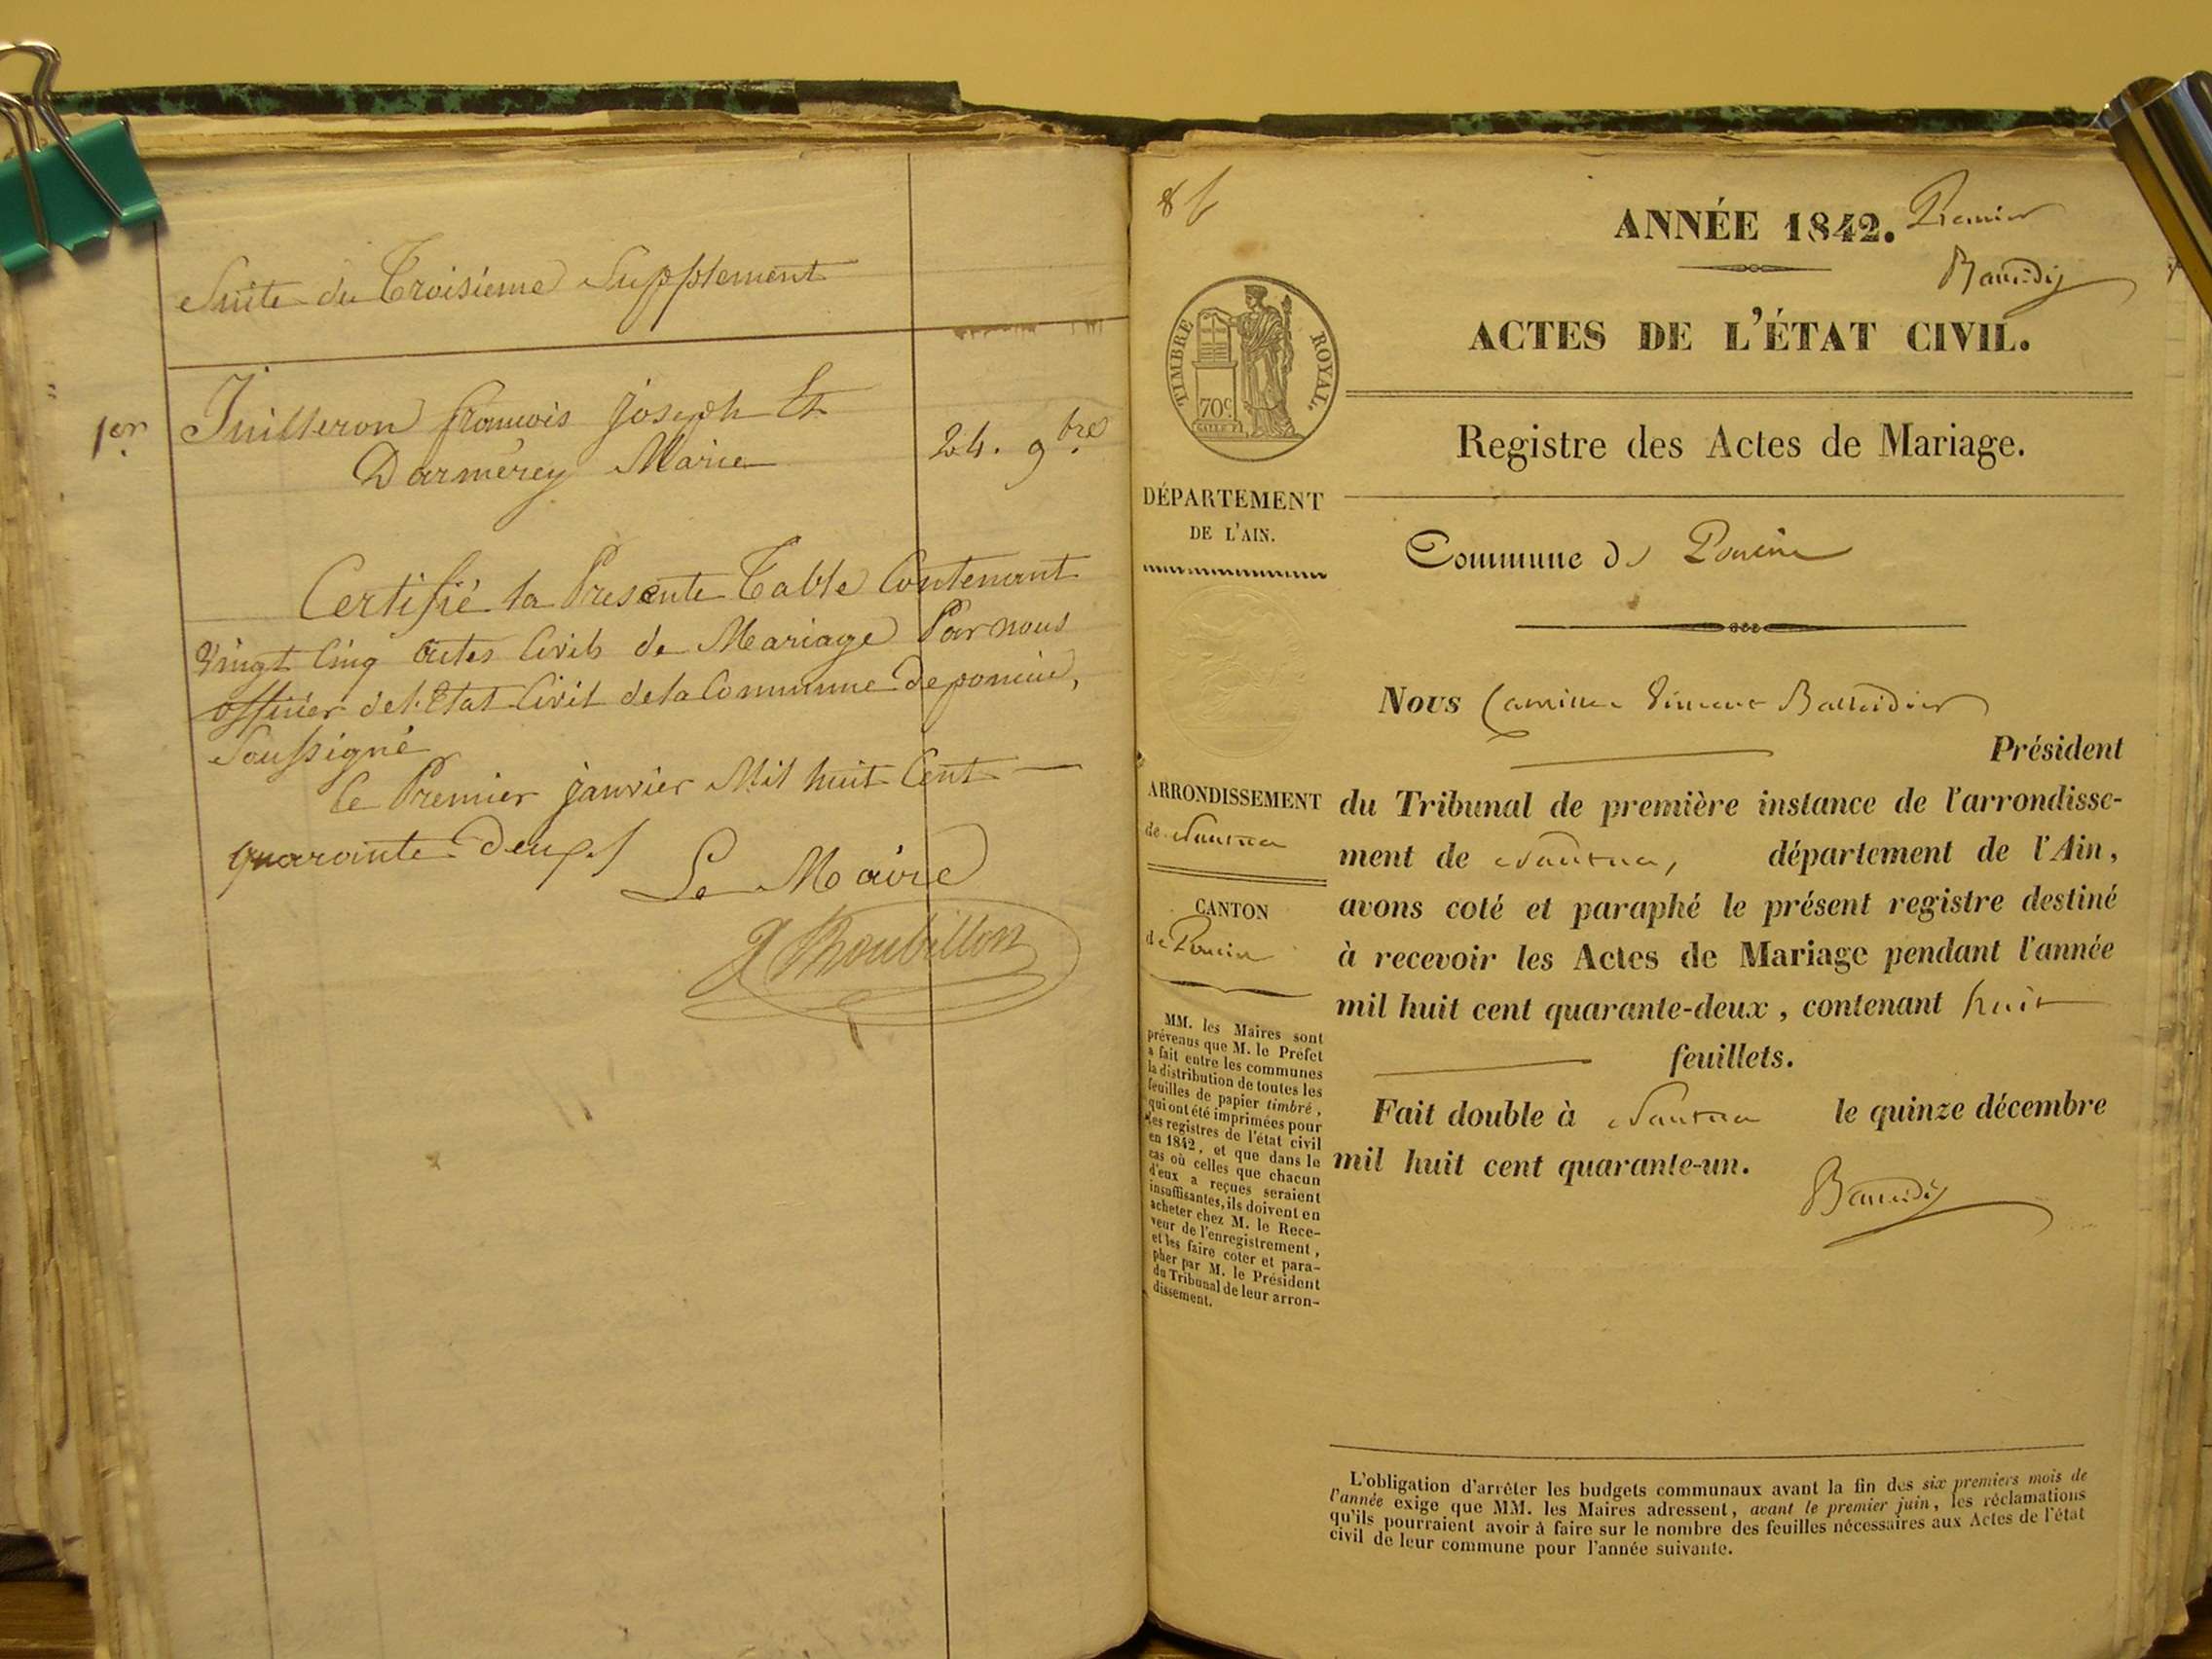 Suite du Troisieme Supplement
1er Juilleron francois joseph Et
Darmerey Marie
24. 9.bre
Certifié la Presente Table Contenant
Vingt Cinq actes Civils de Mariage Par nous
officier de l'Etat Civil de la Commune de poncin,
Soussigné
le Premier janvier Mil huit Cent
quarante Deux
Le Maire
86
ANNÉE 1842. Premier
ACTES DE L'ÉTAT CIVIL.
TIMBRE ROYAL.
70c.
Registre des Actes de Mariage.
DÉPARTEMENT
DE L'AIN.
Commune de Poncin
Nous Camille Vincent
Président
ARRONDISSEMENT
de Nantua
du Tribunal de première instance de l'arrondisse-
ment de Nantua, département de l'Ain,
avons coté et paraphé le présent registre destiné
à recevoir les Actes de Mariage pendant l'année
mil huit cent quarante-deux, contenant huit
feuillets.
Fait double à Nantua le quinze décembre
mil huit cent quarante-un.
CANTON
de Poncin
MM. les Maires sont
prévenus que M. le Préfet
a fait entre les communes
la distribution de toutes les
feuilles de papier timbré,
qui ont été imprimées pour
les registres de l'état civil
en 1842, et que dans le
cas où celles que chacun
d'eux a reçues seraient
insuffisantes, ils doivent en
acheter chez M. le Rece-
veur de l'enregistrement,
et les faire coter et para-
pher par M. le Président
du Tribunal de leur arron-
dissement.
L'obligation d'arrêter les budgets communaux avant la fin des six premiers mois de
l'année exige que MM. les Maires adressent, avant le premier juin, les réclamations
qu'ils pourraient avoir à faire sur le nombre des feuilles nécessaires aux Actes de l'état
civil de leur commune pour l'année suivante.